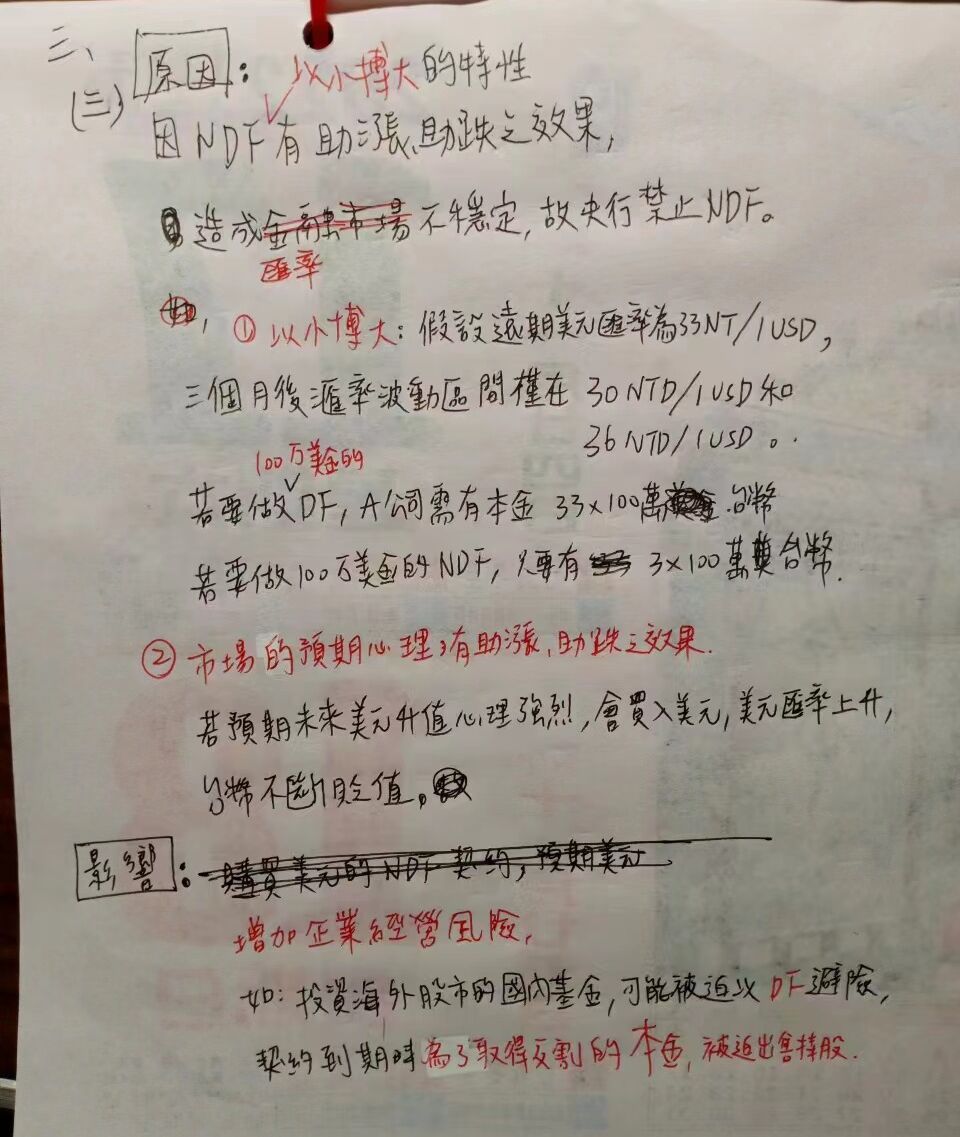 三、
(三) 原因：以小博大的特性
因NDF有助漲、助跌之效果，
造成金融市場不穩定，故央行禁止NDF。
匯率
如，① 以小博大：假設遠期美元匯率為33NT/1USD，
三個月後滙率波動區間僅在 30NTD/1USD和
36NTD/1USD。
100万美金的
若要做DF，A公司需有本金 33×100萬台幣
若要做100万美金的NDF，只要有 3×100萬台幣.
② 市場的預期心理：有助漲、助跌之效果.
若預期未來美元升值心理強烈，會買入美元，美元匯率上升，
台幣不斷貶值。
影響：購買美元的NDF契約，預期美元
增加企業經營風險，
如：投資海外股市的國內基金，可能被迫以DF避險，
契約到期時為了取得交割的本金，被迫出售持股.